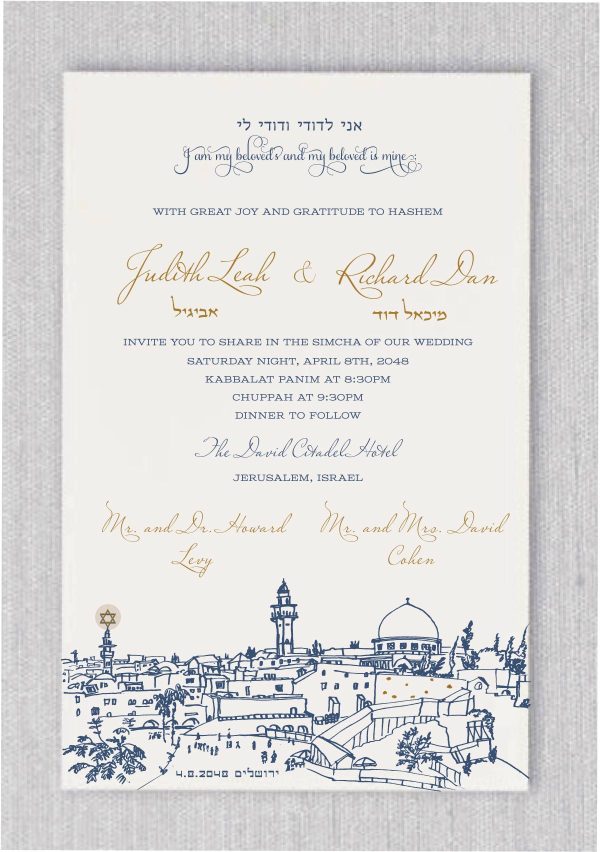 אני לדודי ודודי לי
I am my beloved's and my beloved is mine
WITH GREAT JOY AND GRATITUDE TO HASHEM
Judith Leah & Richard Dan
אביגיל מיכאל דוד
INVITE YOU TO SHARE IN THE SIMCHA OF OUR WEDDING
SATURDAY NIGHT, APRIL 8TH, 2048
KABBALAT PANIM AT 8:30PM
CHUPPAH AT 9:30PM
DINNER TO FOLLOW
The David Citadel Hotel
JERUSALEM, ISRAEL
Mr. and Dr. Howard
Levy
Mr. and Mrs. David
Cohen
4.8.2048 ירושלים